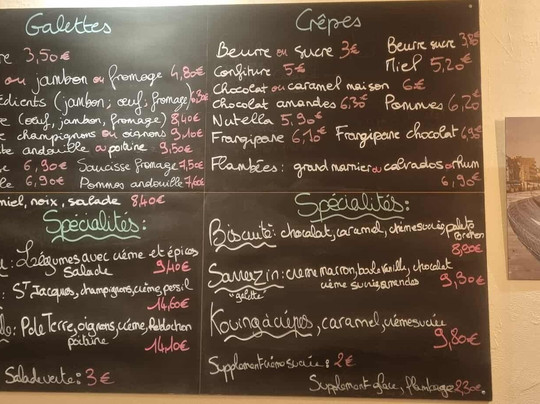 Galettes
re 3,50€
ou jambon ou fromage 4,80€
édients (jambon; œuf; fromage) 6,30€
re (œuf, jambon, fromage) 8,40€
e champignons ou oignons 9,10€
te andouille ou poitrine 9,50€
e 6,90€ Saucisse fromage 7,50€
le 6,90€ Pommes andouille 7,60€
miel, noix, salade 8,40€
Spécialités:
: Légumes avec crème et épices
Salade 9,40€
: St Jacques, champignons, crème, persil
14,60€
lle: Pole Terre, oignons, crème, Reblochon
poitrine 14,10€
Salade verte: 3€
Crêpes
Beurre ou Sucre 3€ Beurre sucre
Confiture 5€ Miel 5,20€
Chocolat ou caramel maison 6€
Chocolat amandes 6,30€ Pommes 6,20€
Nutella 5,90€
Frangipane 6,10€ Frangipane chocolat
Flambées: grand marnier ou calvados ou rhum
6,90€
Spécialités:
Biscuité: chocolat, caramel, crème sucrée, palets
Breton
8,90€
Sarrazin: crème marron, boule vanille, chocolat
"galette" crème sucrée, amandes 9,30€
Kouing à crêpes, caramel, crème sucrée
9,80€
Supplément crème sucrée: 2€
Supplément glace, flambage 2,30€